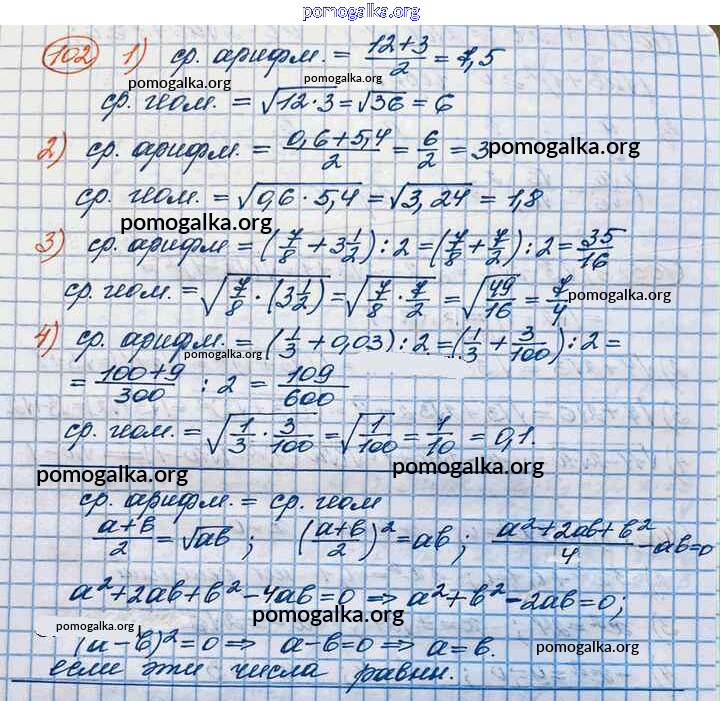 pomogalka.org
102 1) ср. арифм. = (12+3)/2 = 7,5
pomogalka.org pomogalka.org
ср. геом. = √(12·3) = √36 = 6
2) ср. арифм. = (0,6+5,4)/2 = 6/2 = 3
pomogalka.org
ср. геом. = √(0,6 · 5,4) = √3,24 = 1,8
pomogalka.org
3) ср. арифм = (7/8 + 3 1/2) : 2 = (7/8 + 7/2) : 2 = 35/16
ср. геом. = √(7/8 · (3 1/2)) = √(7/8 · 7/2) = √(49/16) = 7/4
pomogalka.org
4) ср. арифм. = (1/3 + 0,03) : 2 = (1/3 + 3/100) : 2 =
pomogalka.org
= (100+9)/300 : 2 = 109/600
ср. геом. = √(1/3 · 3/100) = √(1/100) = 1/10 = 0,1.
pomogalka.org pomogalka.org
ср. арифм. = ср. геом
(a+b)/2 = √ab ; ((a+b)/2)² = ab ; (a²+2ab+b²)/4 - ab=0
a²+2ab+b²-4ab=0 ⇒ a²+b²-2ab=0;
pomogalka.org
pomogalka.org
(a-b)²=0 ⇒ a-b=0 ⇒ a=b.
pomogalka.org
если эти числа равны.